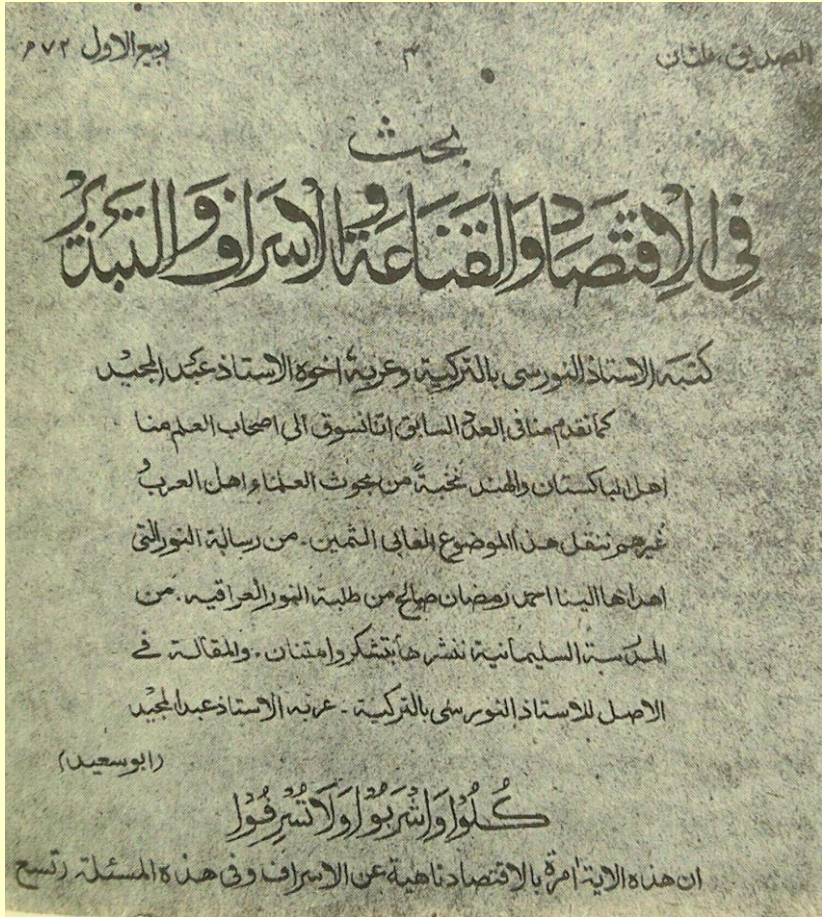 الصديق، ملتان ۴ ربيع الاول ۷۲ ھ
بحث
فِي الْاِقتِصَاد وَالقَنَاعَة وَالاسرَاف وَالتبذير
كتبه الاستاذ النورسى بالتركية وعربه اخوه الاستاذ عبد المجيد
كما تقدم منا فى العدد السابق اننا نسوق الى اصحاب العلم منا
اهل الباكستان والهند نخبةً من بحوث العلماء اهل العرب و
غيرهم ننقل هذا الموضوع الغالى الثمين۔ من رسالة النور التى
اهداها الينا احمد رمضان صالح من طلبة النور العراقيه۔ من
المدرسة السليمانية ننشرها بتشكر وامتنان۔ والمقالة فى
الاصل للاستاذ النورسى بالتركية۔ عربه الاستاذ عبد المجيد
(ابو سعيد)
كُلُوْا وَاشْرَبُوْا وَلَا تُسْرِفُوْا
ان هذه الاية امرة بالاقتصاد ناهية عن الاسراف وفى هذه المسئلة رتسع